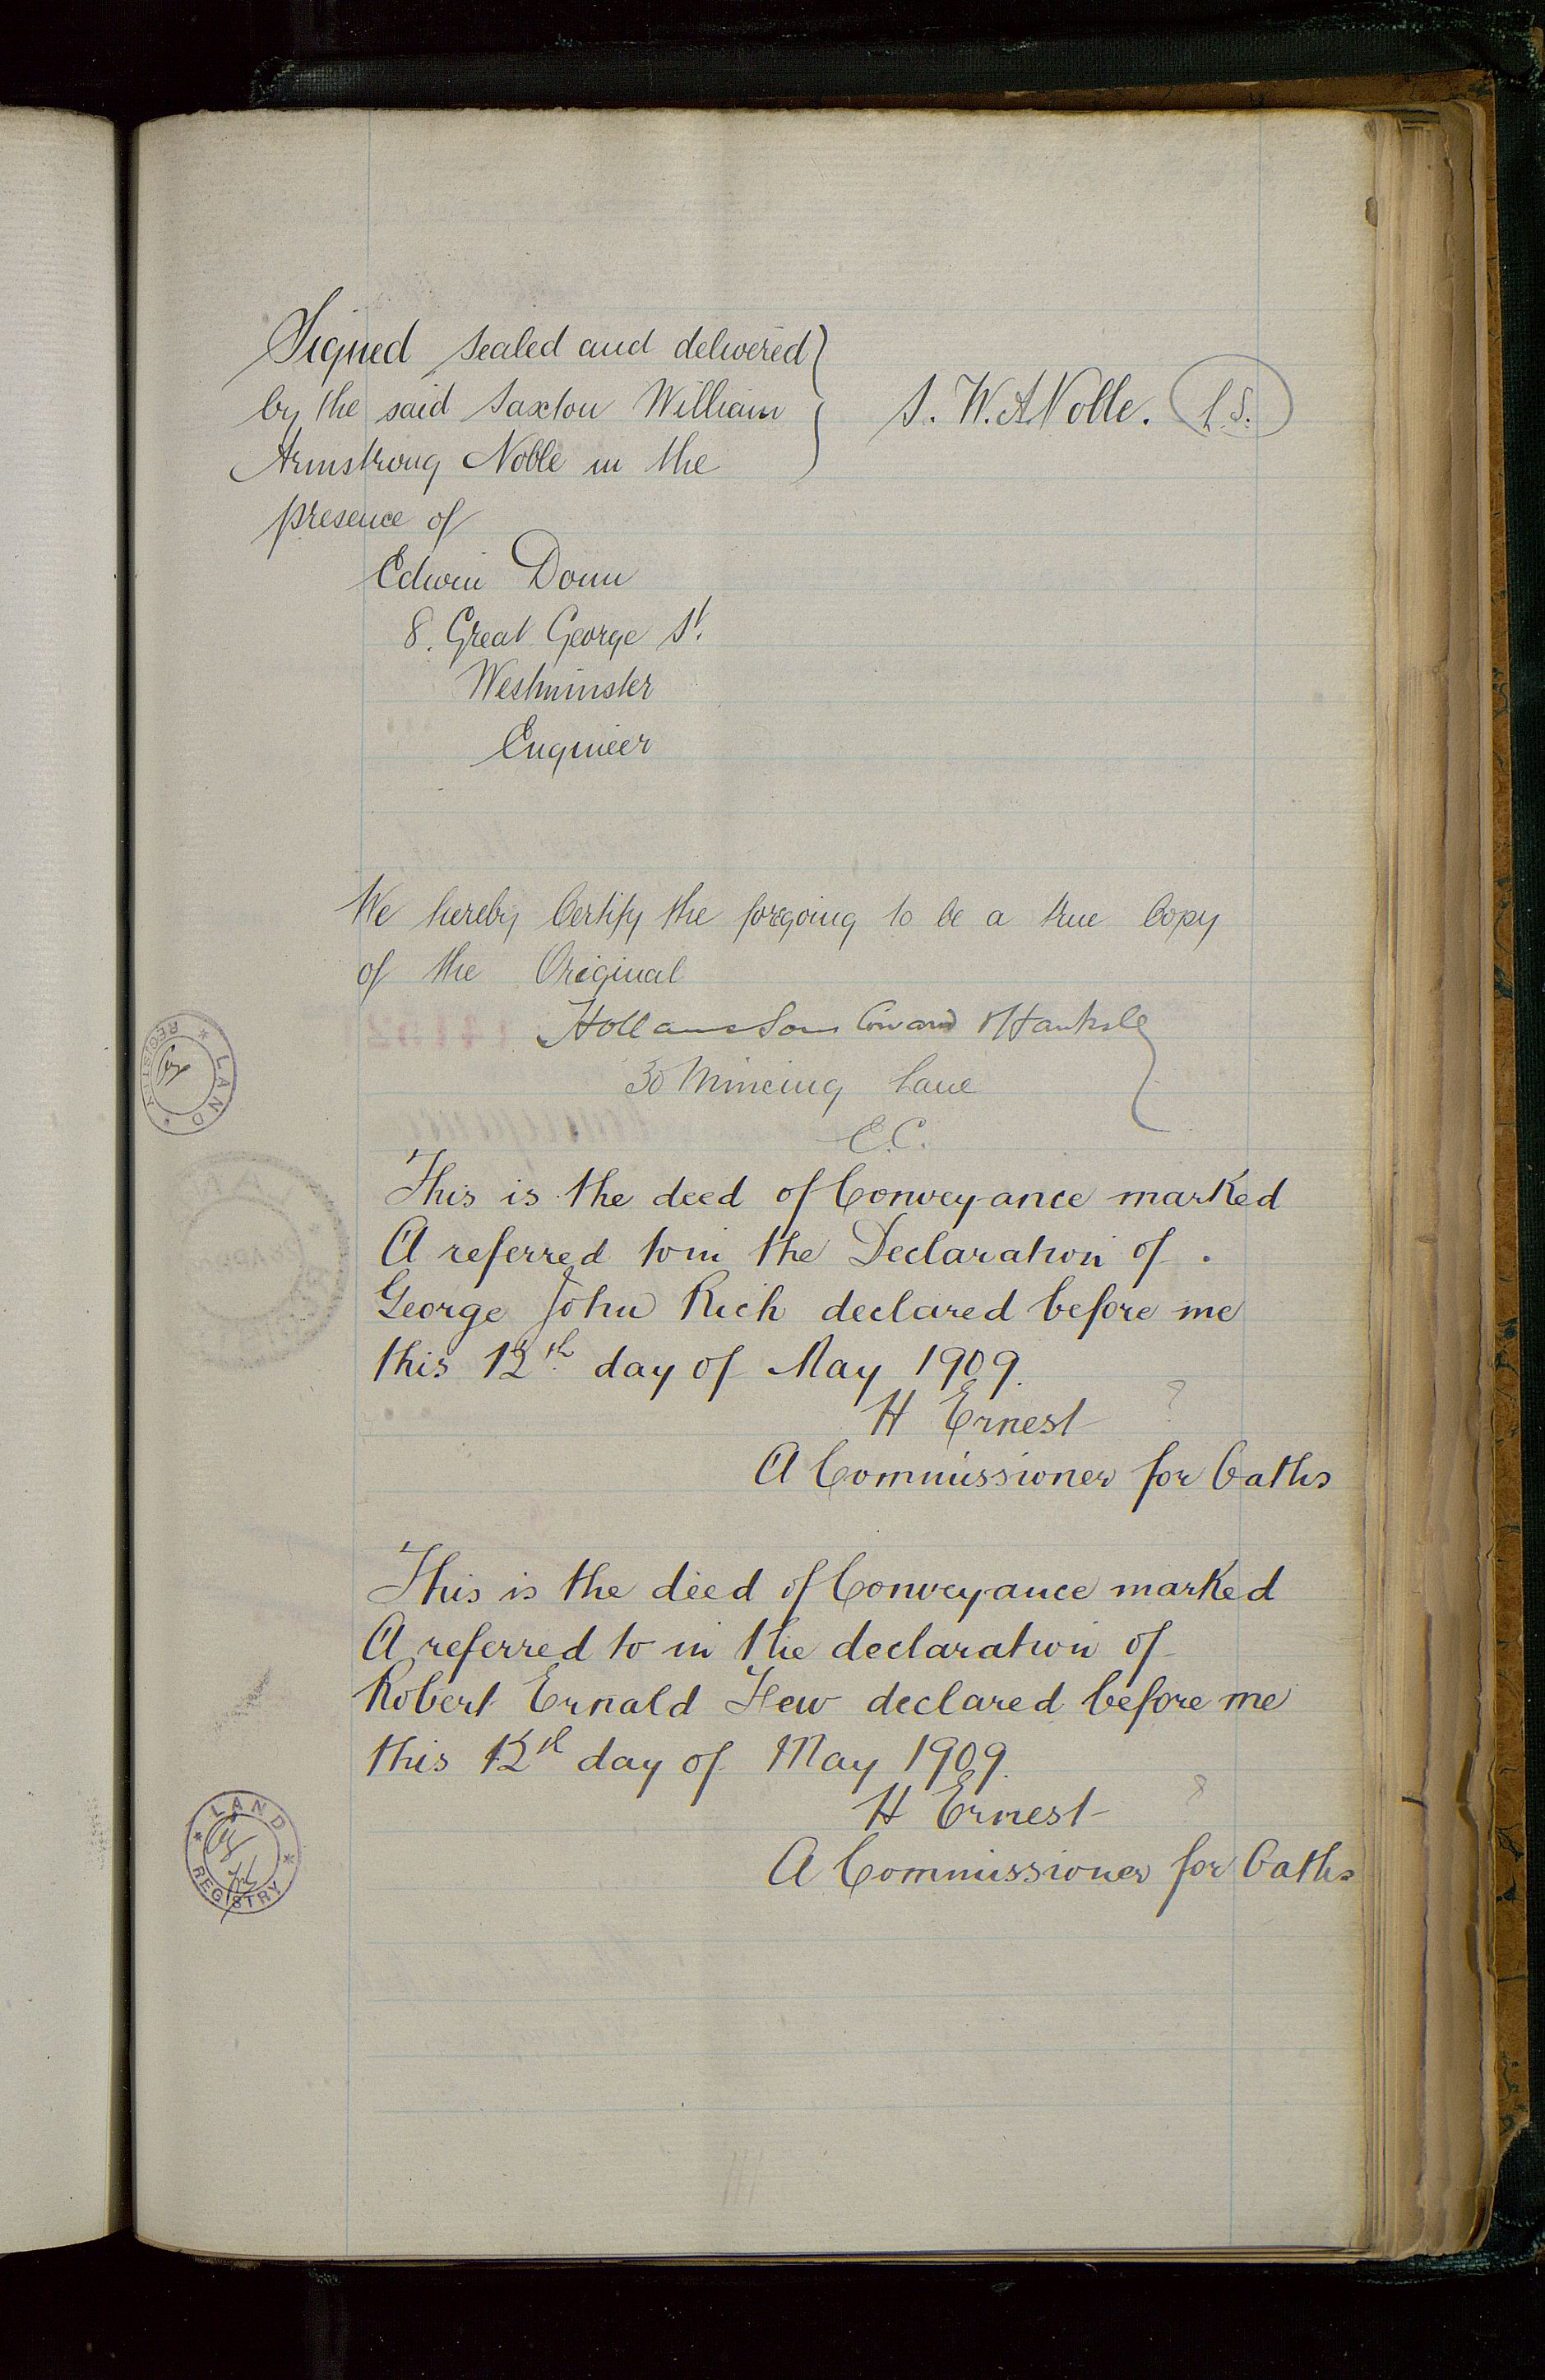 Signed sealed and delivered
by the said Saxton William
Armstrong Noble in the
presence of
S. W. A Noble. L.S.
Edwin Donn
8. Great George St.
Westminster
Engineer
We hereby Certify the foregoing to be a true Copy
of the Original
Hollams Sons Coward & Hawksley
30 Mincing Lane
E.C.
This is the deed of Conveyance marked
A referred to in the Declaration of.
George John Rich declared before me
this 12th day of May 1909.
H Ernest ?
A Commissioner for Oaths
This is the deed of Conveyance marked
A referred to in the declaration of
Robert Ernald Hew declared before me
this 12th day of May 1909.
H Ernest ?
A Commissioner for Oaths
LAND REGISTRY
LAND REGISTRY